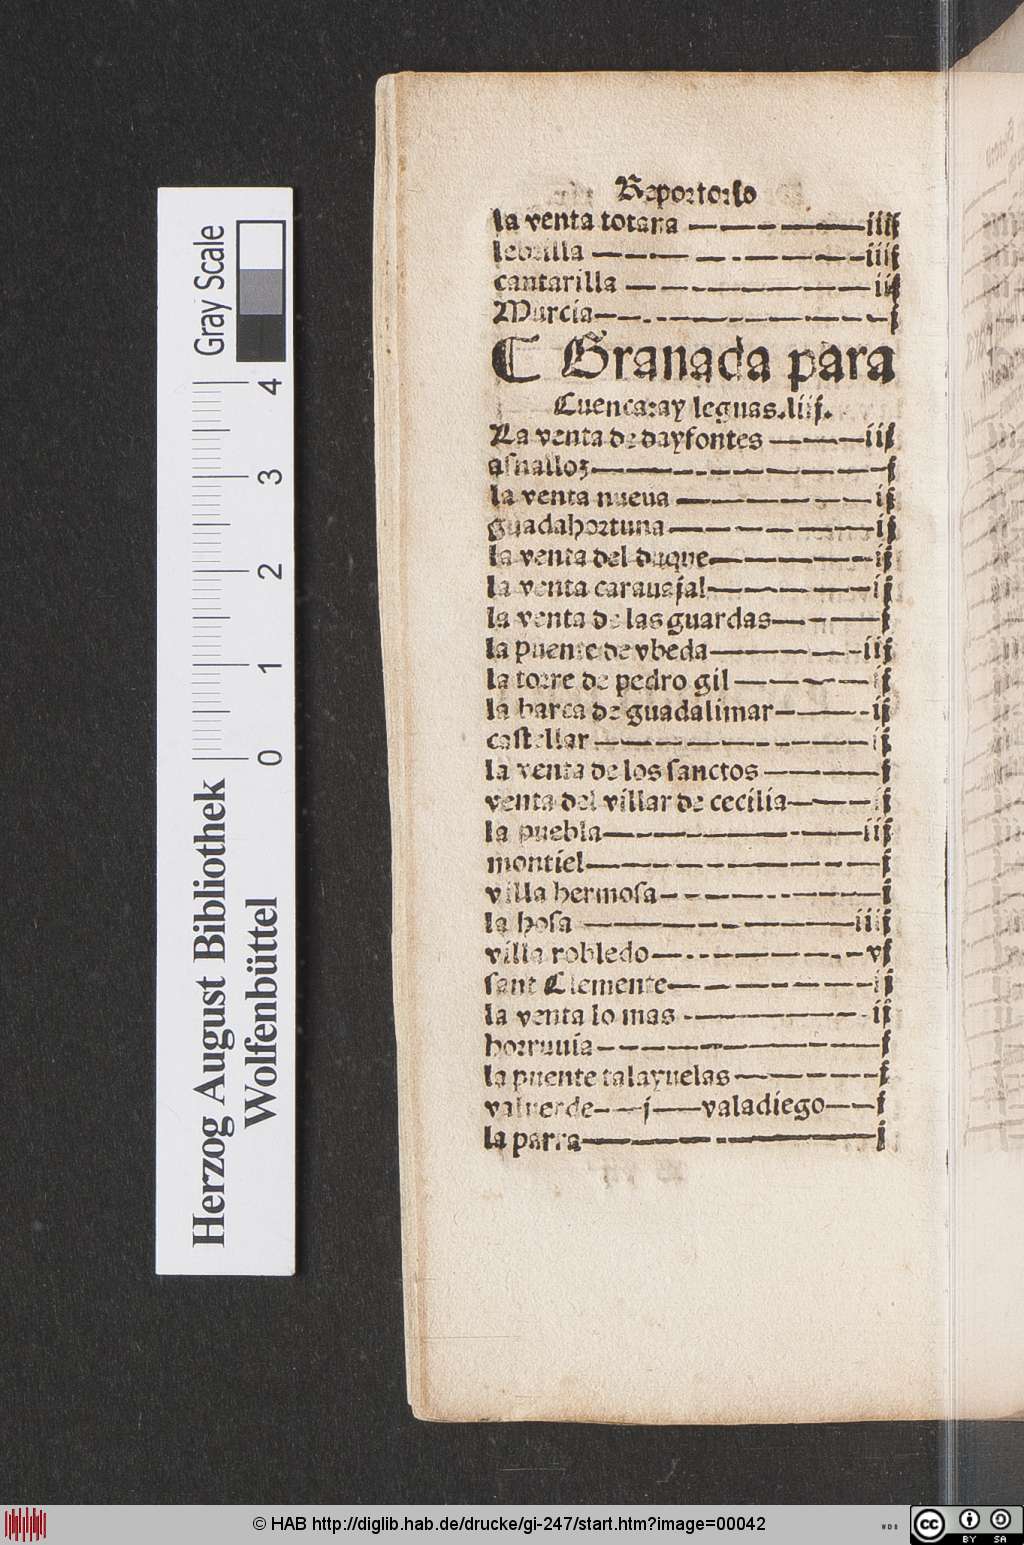 Reportorio
la venta totana iiij
lebrilla iiij
cantarilla iij
Murcia j
C Granada para
Cuenca:ay leguas.liij.
La venta de dayfontes iij
asnalloz j
la venta nueua ij
guadahortuna ij
la venta del duque ij
la venta carauajal ij
la venta de las guardas j
la puente de vbeda iij
la torre de pedro gil ij
la barca de guadalimar ij
castellar ij
la venta de los sanctos j
venta del villar de cecilia ij
la puebla iij
montiel j
villa hermosa j
la hosa iiij
villa robledo vj
sant Clemente ij
la venta lo mas ij
horruuia j
la puente talayuelas j
valuerde j valadiego j
la parra j
Gray Scale
0 1 2 3 4
Herzog August Bibliothek
Wolfenbüttel
© HAB http://diglib.hab.de/drucke/gi-247/start.htm?image=00042
WDB
cc BY SA